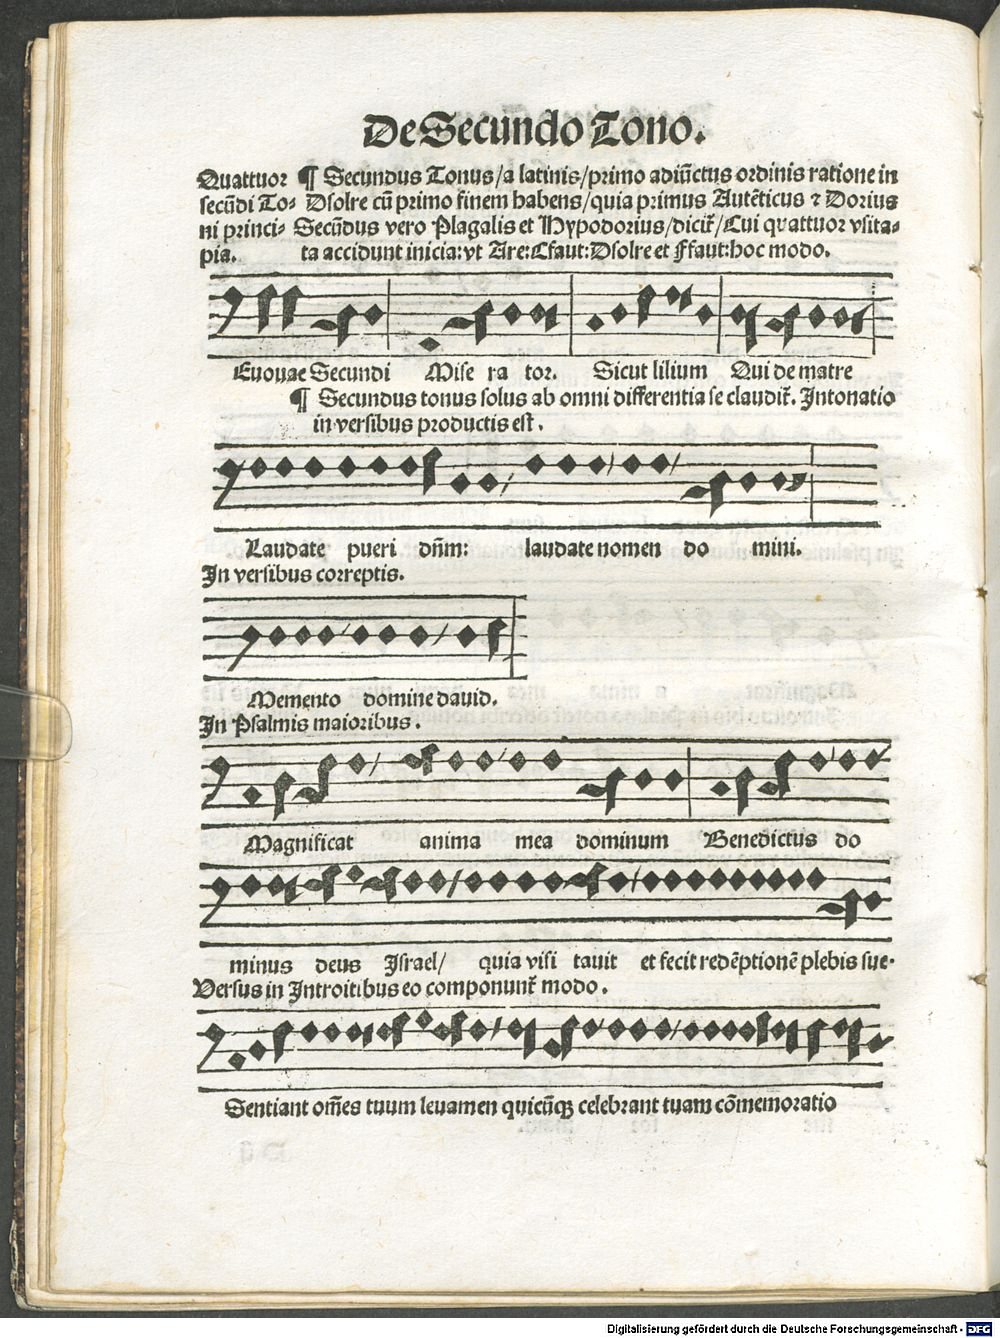 De Secundo Tono.
Quattuor ¶ Secundus Tonus/a latinis/primo adiũctus ordinis ratione in
secũdi To⸗ Dsolre cũ primo finem habens/quia primus Autẽticus ⁊ Dorius
ni princi⸗ Secũdus vero Plagalis et Hypodorius/dicit̃/Cui quattuor vsita⸗
pia. ta accidunt inicia:vt Are:Cfaut:Dsolre et Ffaut:hoc modo.
Euouae Secundi Mise ra tor. Sicut lilium Qui de matre
¶ Secundus tonus solus ab omni differentia se claudit̃. Intonatio
in versibus productis est.
Laudate pueri dñm: laudate nomen do mini.
In versibus correptis.
Memento domine dauid.
In Psalmis maioribus.
Magnificat anima mea dominum Benedictus do
minus deus Israel/ quia visi tauit et fecit redẽptionẽ plebis sue.
Versus in Introitibus eo componunt̃ modo.
Sentiant om̃es tuum leuamen quicũqꝫ celebrant tuam cõmemoratio
Digitalisierung gefördert durch die Deutsche Forschungsgemeinschaft - DFG